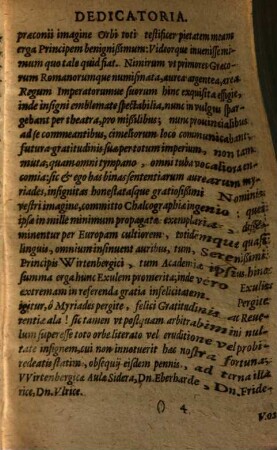 DEDICATORIA.
præconii imagine Orbi toti testificer pietatem meam
erga Principem benignissimum: Videorque inuenissemi-
mum quo tale quid fiat. Nimirum vt primores Græco-
rum Romanorumque numismata, aurea argentea, ærea
Regum Imperatorumue suorum hinc exquisita effigie,
inde insigni emblemate spectabilia, nunc in vulgus spar-
gebant per theatra, pro missilibus; nunc prouincialibus
ad se commeantibus, cimeliorum loco communicabant,
futura gratitudinis sua per totum imperium, non tam
muta, quam omni tympano, omni tuba vocaliora en-
comia: sic & ego has binas sententiarum aurearum my-
riades, insignitas honestatasque gratiosissimi Nominis
vestri imagine, committo Chalcographiæ ingenio: quæ
ipsæ in mille minimum propagatæ exemplaria, disse-
minentur per Europam cultiorem, totidemque quasi
linguis, omnium insinuent auribus, tum, Serenissimi
Principis Wirtenbergici, tum Academiæ Ipsius hinc
summa erga hunc Exulem promerita, inde vero Exulis
extremam in referenda gratia infelicitatem. Pergite
igitur, ô Myriades pergite, felici Gratitudinis an Reue-
rentiæ ala! sic tamen vt postquam arbitrabimini nul-
lum superesse toto orbe literato vel eruditione vel probi-
tate insignem, cui non innotuerit hæc nostra fortuna,
redeatis statim, obsequii eisdem pennis, ad terna illa
VVirtenbergicæ Aulæ Sidera, Dn. Eberharde, Dn. Fride-
rice, Dn. Vlrice.
() 4. Vos